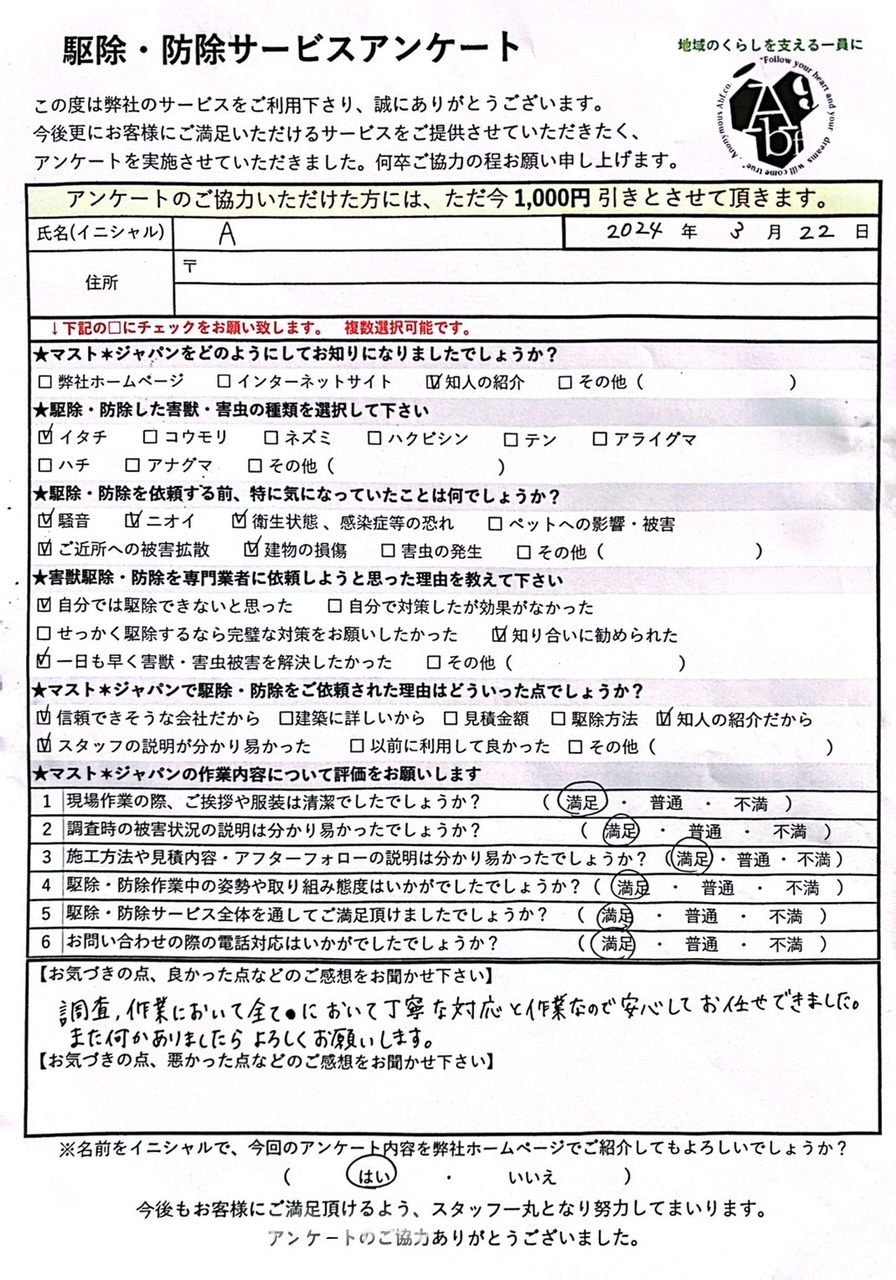 駆除・防除サービスアンケート
地域のくらしを支える一員に
"Follow your heart and your dreams will come true". Anonymous Abf.co.
Abf
この度は弊社のサービスをご利用下さり、誠にありがとうございます。
今後更にお客様にご満足いただけるサービスをご提供させていただきたく、
アンケートを実施させていただきました。何卒ご協力の程お願い申し上げます。
アンケートのご協力いただけた方には、ただ今 1,000円 引きとさせて頂きます。
氏名(イニシャル) A 2024 年 3 月 22 日
住所 〒
↓下記の□にチェックをお願い致します。 複数選択可能です。
★マスト＊ジャパンをどのようにしてお知りになりましたでしょうか？
□ 弊社ホームページ □ インターネットサイト ☑ 知人の紹介 □ その他（ ）
★駆除・防除した害獣・害虫の種類を選択して下さい
☑ イタチ □ コウモリ □ ネズミ □ ハクビシン □ テン □ アライグマ
□ ハチ □ アナグマ □ その他（ ）
★駆除・防除を依頼する前、特に気になっていたことは何でしょうか？
☑ 騒音 ☑ ニオイ ☑ 衛生状態、感染症等の恐れ □ ペットへの影響・被害
☑ ご近所への被害拡散 ☑ 建物の損傷 □ 害虫の発生 □ その他（ ）
★害獣駆除・防除を専門業者に依頼しようと思った理由を教えて下さい
☑ 自分では駆除できないと思った □ 自分で対策したが効果がなかった
□ せっかく駆除するなら完璧な対策をお願いしたかった ☑ 知り合いに勧められた
☑ 一日も早く害獣・害虫被害を解決したかった □ その他（ ）
★マスト＊ジャパンで駆除・防除をご依頼された理由はどういった点でしょうか？
☑ 信頼できそうな会社だから □建築に詳しいから □ 見積金額 □ 駆除方法 ☑ 知人の紹介だから
☑ スタッフの説明が分かり易かった □ 以前に利用して良かった □ その他（ ）
★マスト＊ジャパンの作業内容について評価をお願いします
1 現場作業の際、ご挨拶や服装は清潔でしたでしょうか？ （ 満足 ・ 普通 ・ 不満 ）
2 調査時の被害状況の説明は分かり易かったでしょうか？ （ 満足 ・ 普通 ・ 不満 ）
3 施工方法や見積内容・アフターフォローの説明は分かり易かったでしょうか？ （ 満足 ・ 普通 ・ 不満 ）
4 駆除・防除作業中の姿勢や取り組み態度はいかがでしたでしょうか？ （ 満足 ・ 普通 ・ 不満 ）
5 駆除・防除サービス全体を通してご満足頂けましたでしょうか？ （ 満足 ・ 普通 ・ 不満 ）
6 お問い合わせの際の電話対応はいかがでしたでしょうか？ （ 満足 ・ 普通 ・ 不満 ）
【お気づきの点、良かった点などのご感想をお聞かせ下さい】
調査,作業において全てにおいて丁寧な対応と作業なので安心してお任せできました。
また何かありましたらよろしくお願いします。
【お気づきの点、悪かった点などのご感想をお聞かせ下さい】
※名前をイニシャルで、今回のアンケート内容を弊社ホームページでご紹介してもよろしいでしょうか？
（ はい ・ いいえ ）
今後もお客様にご満足頂けるよう、スタッフ一丸となり努力してまいります。
アンケートのご協力ありがとうございました。